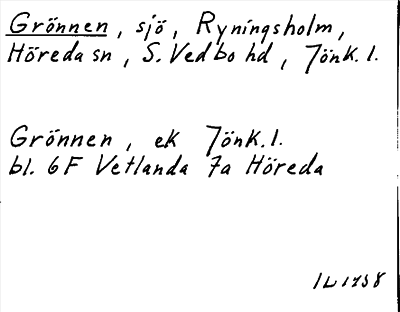 Grönnen, sjö, Ryningsholm,
Höreda sn, S. Vedbo hd, Jönk. l.
Grönnen, ek Jönk. l.
bl. 6F Vetlanda 7a Höreda